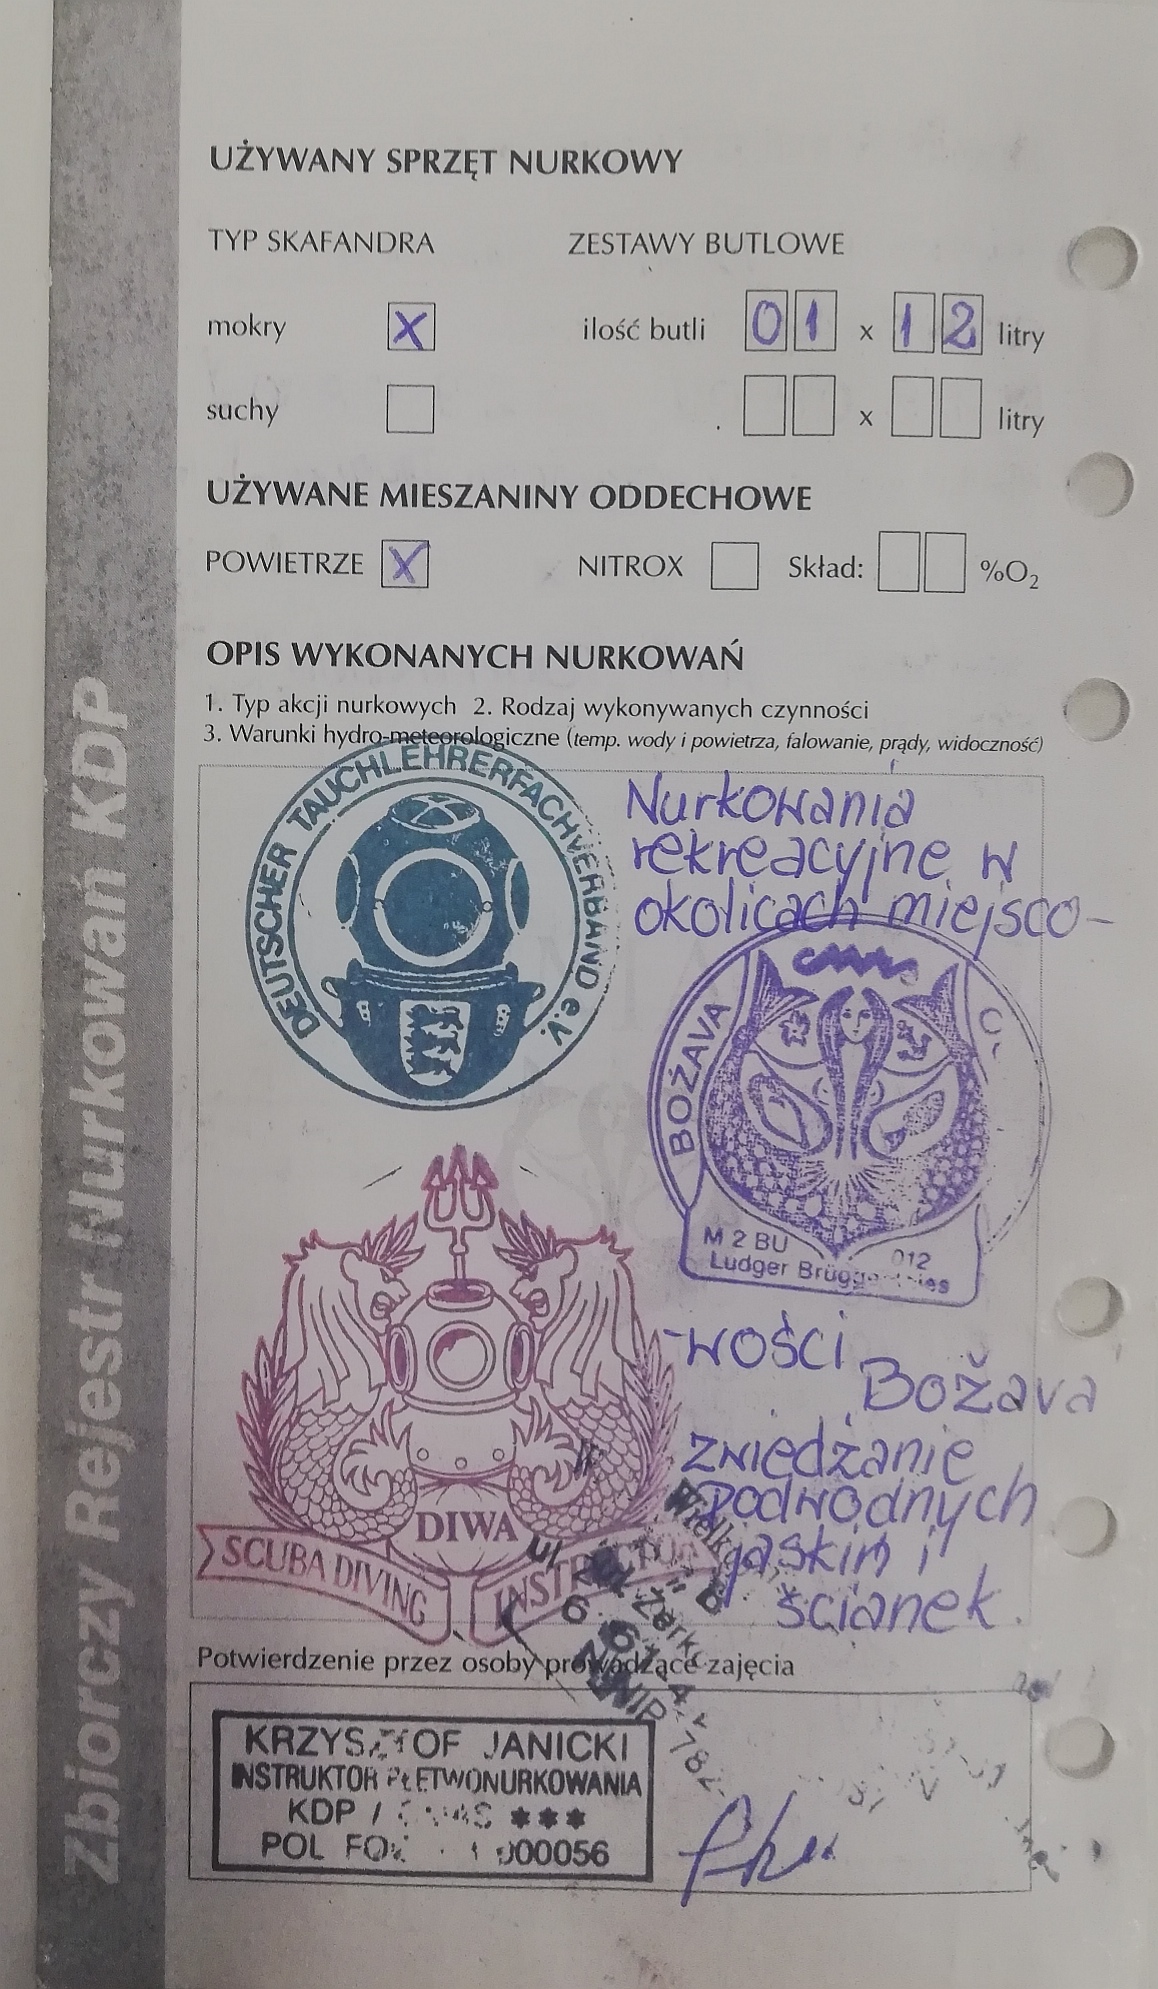 Zbiorczy Rejestr Nurkowań KDP
UŻYWANY SPRZĘT NURKOWY
TYP SKAFANDRA ZESTAWY BUTLOWE
mokry X ilość butli 01 x 12 litry
suchy x litry
UŻYWANE MIESZANINY ODDECHOWE
POWIETRZE X NITROX Skład: %O₂
OPIS WYKONANYCH NURKOWAŃ
1. Typ akcji nurkowych 2. Rodzaj wykonywanych czynności
3. Warunki hydro-meteorologiczne (temp. wody i powietrza, falowanie, prądy, widoczność)
DEUTSCHER TAUCHLEHRERFACHVERBAND e.V.
Nurkowania
rekreacyjne w
okolicach miejsco-
BOŽAVA
M 2 BU 012
Ludger
-wości
Božava
zwiedżanie
podwodnych
jaskiń i
ścianek.
DIWA
SCUBA DIVING INSTRUCTOR
Potwierdzenie przez osoby prowadzące zajęcia
KRZYSZTOF JANICKI
INSTRUKTOR PŁETWONURKOWANIA
KDP / CMAS ***
POL 000056